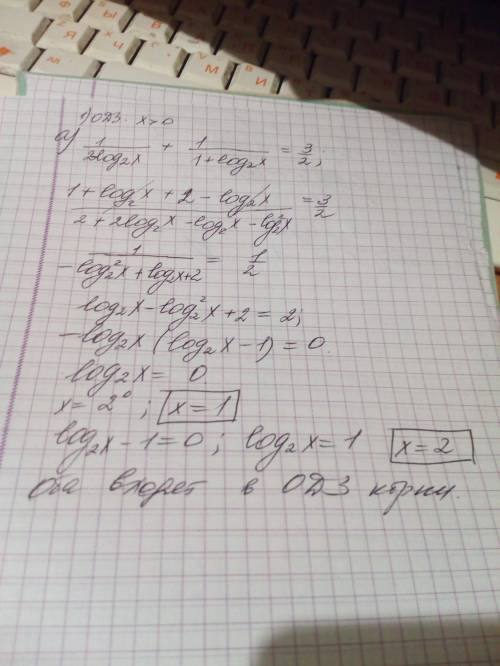 1) ОДЗ: x > 0
а) 1/(2-log₂x) + 1/(1+log₂x) = 3/2;
(1+log₂x+2-log₂x)/(2+2log₂x-log₂x-log₂²x) = 3/2
1/(-log₂²x+log₂x+2) = 1/2
log₂x-log₂²x+2 = 2;
-log₂x(log₂x-1) = 0.
log₂x = 0
x = 2⁰; x = 1
log₂x-1=0; log₂x=1 x=2
оба входят в ОДЗ корни.